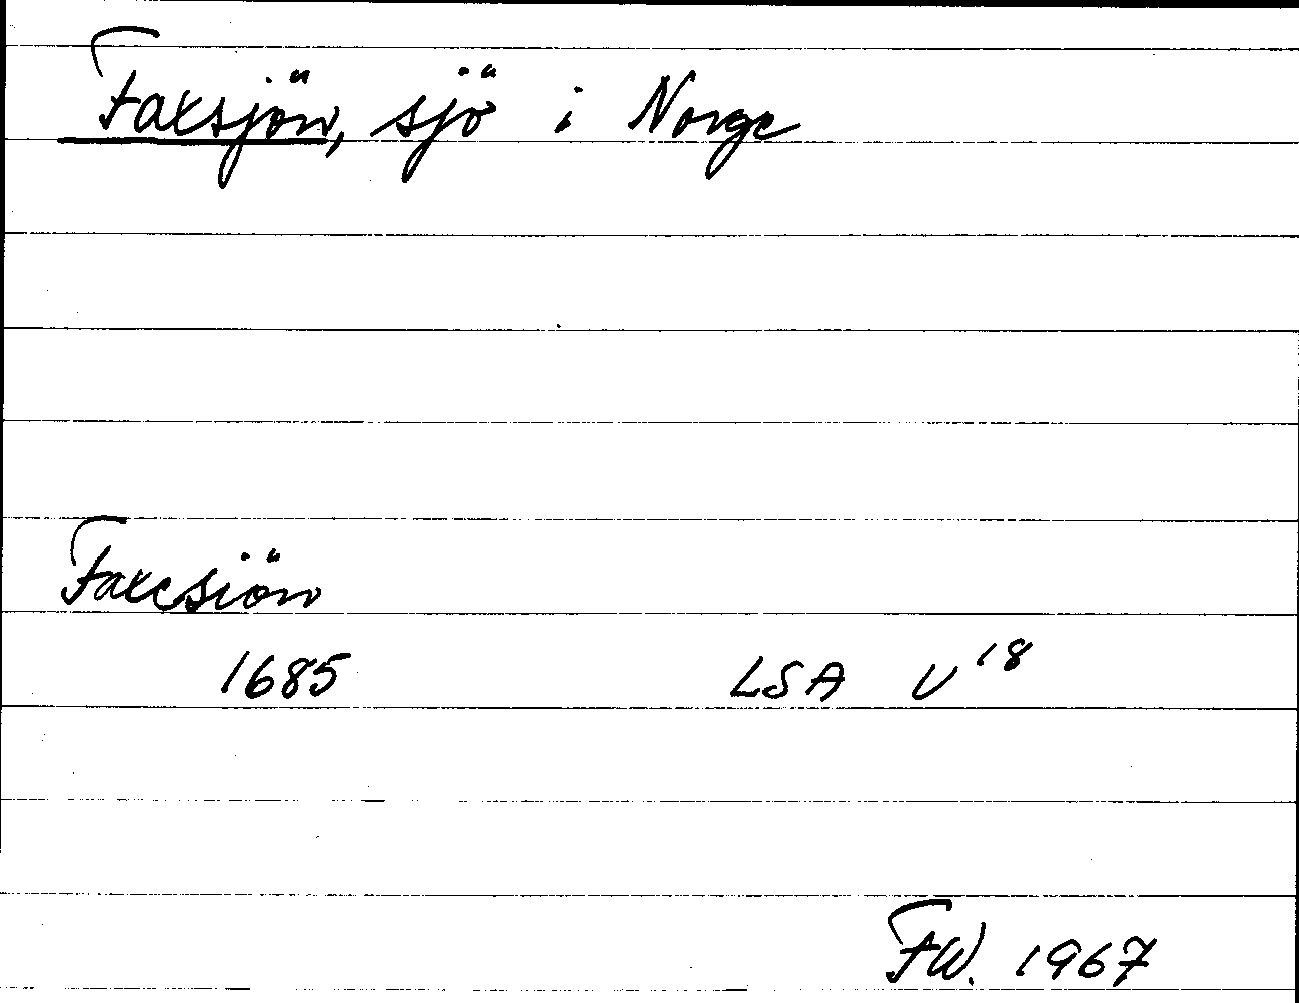 Faxsjön, sjö i Norge
Faxesiön
1685 LSA U¹⁸
FW. 1967